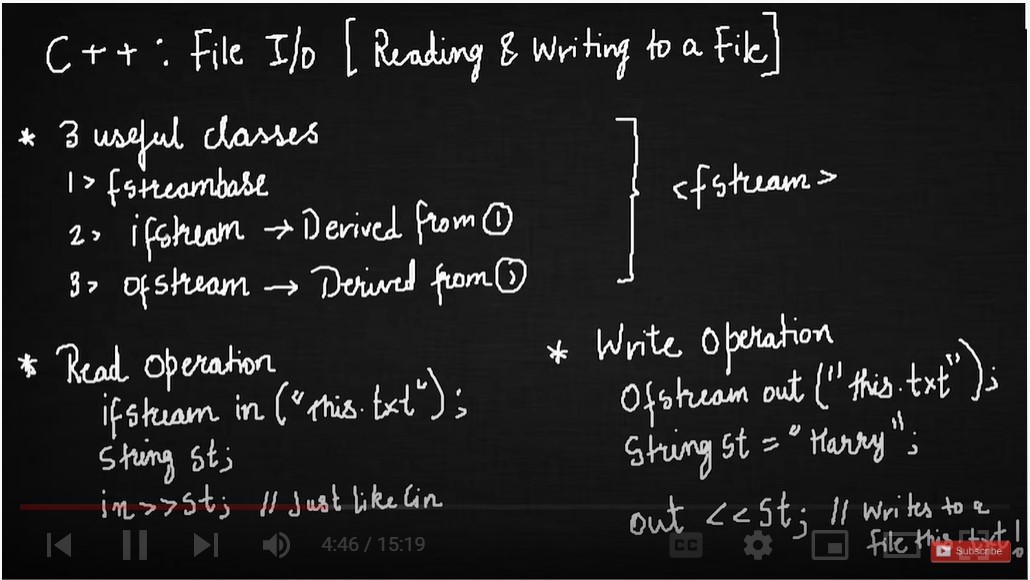 C++ : File I/O [Reading & Writing to a File]
* 3 useful classes
1> fstreambase
2> ifstream → Derived from ①
3> ofstream → Derived from ①
<fstream>
* Read operation
ifstream in ("this.txt");
string st;
in>>st; // Just like Cin
* Write operation
Ofstream out ("this.txt");
String st = "Harry";
out <<st; // Writes to a
file this.txt!
4:46 / 15:19
CC
Subscribe